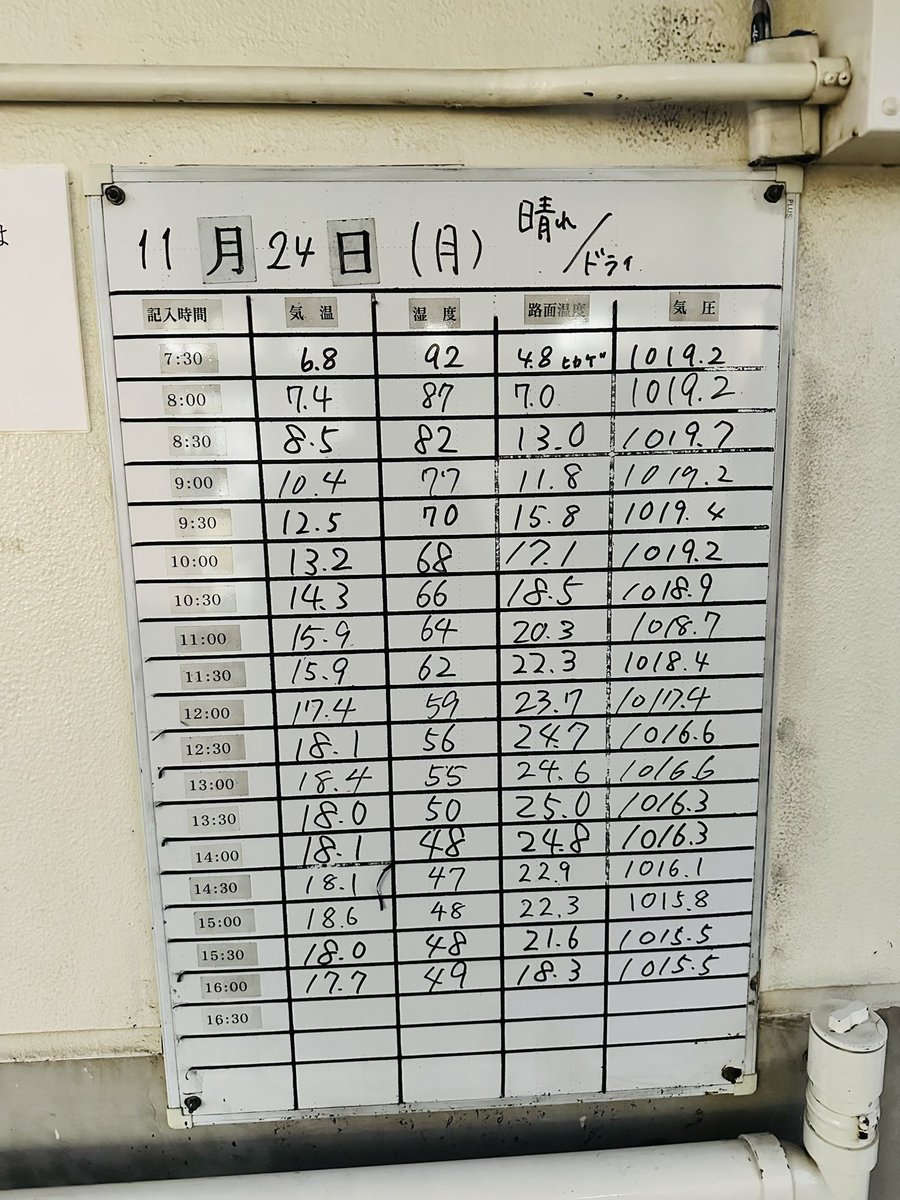 は
PLUS
11月24日(月) 晴れ/ドライ
記入時間 気温 湿度 路面温度 気圧
7:30 6.8 92 4.8 ヒカゲ 1019.2
8:00 7.4 87 7.0 1019.2
8:30 8.5 82 13.0 1019.7
9:00 10.4 77 11.8 1019.2
9:30 12.5 70 15.8 1019.4
10:00 13.2 68 17.1 1019.2
10:30 14.3 66 18.5 1018.9
11:00 15.9 64 20.3 1018.7
11:30 15.9 62 22.3 1018.4
12:00 17.4 59 23.7 1017.4
12:30 18.1 56 24.7 1016.6
13:00 18.4 55 24.6 1016.6
13:30 18.0 50 25.0 1016.3
14:00 18.1 48 24.8 1016.3
14:30 18.1 47 22.9 1016.1
15:00 18.6 48 22.3 1015.8
15:30 18.0 48 21.6 1015.5
16:00 17.7 49 18.3 1015.5
16:30